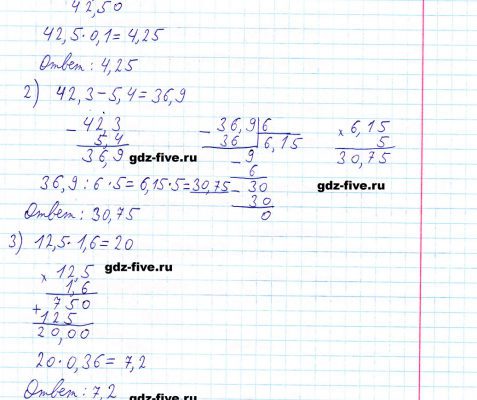 42,50
42,5·0,1=4,25
Ответ: 4,25
2) 42,3-5,4=36,9
- 42,3
5,4
36,9
- 36,9 | 6
36 | 6,15
- 9
6
- 30
30
0
× 6,15
5
30,75
gdz-five.ru
gdz-five.ru
36,9:6·5=6,15·5=30,75
Ответ: 30,75
3) 12,5·1,6=20
gdz-five.ru
× 12,5
1,6
+ 750
125
20,00
20·0,36=7,2
Ответ: 7,2
gdz-five.ru